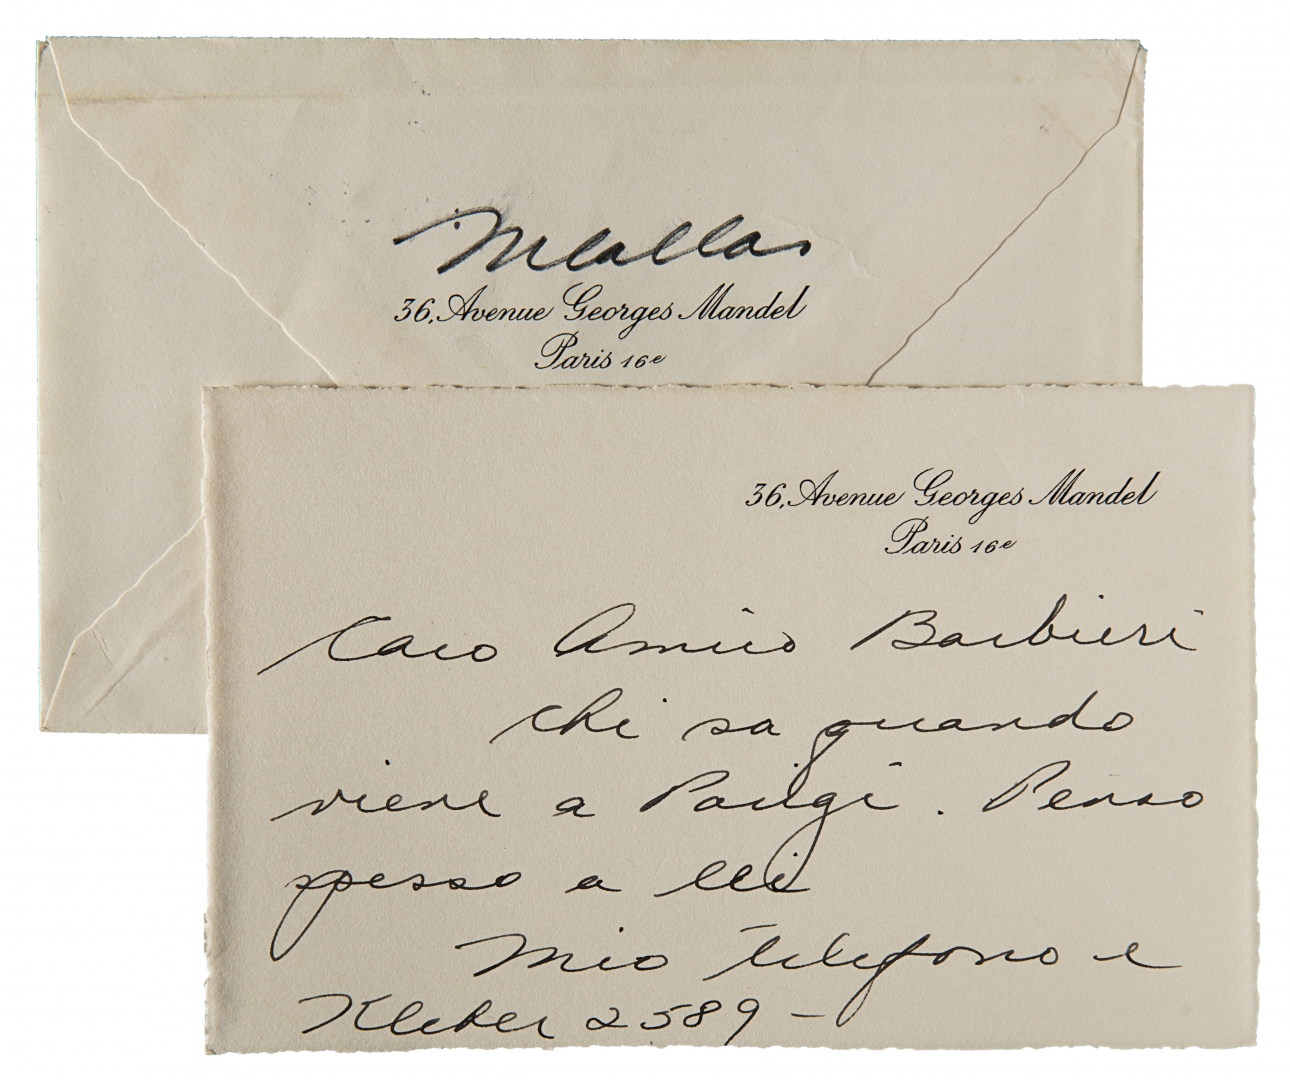 MCallas
36, Avenue Georges Mandel
Paris 16e
36, Avenue Georges Mandel
Paris 16e
Caro Amico Barbieri
chi sa quando
viene a Parigi. Penso
spesso a lei
Mio telefono e
Kleber 2589 –